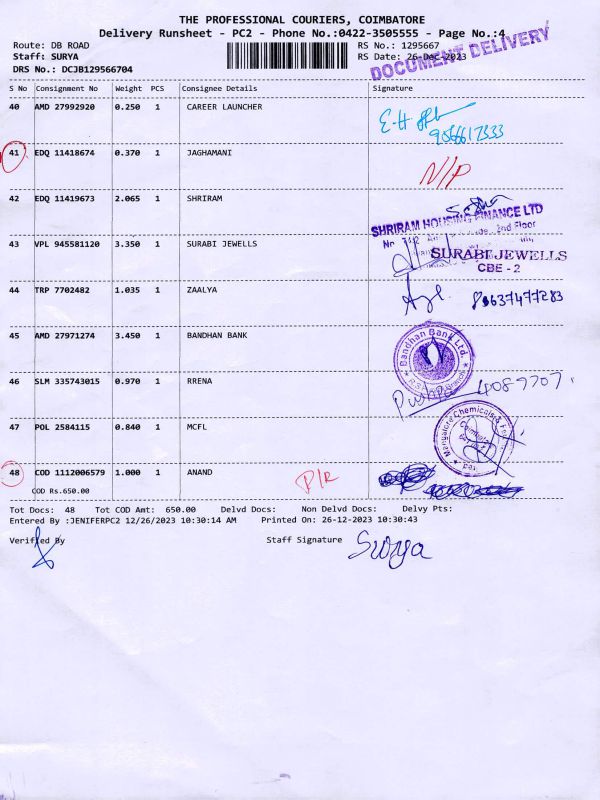 THE PROFESSIONAL COURIERS, COIMBATORE
Delivery Runsheet - PC2 - Phone No.:0422-3505555 - Page No.:4
Route: DB ROAD
RS No.: 1295667
Staff: SURYA
RS Date: 26-Dec-2023
DOCUMENT DELIVERY
DRS No.: DCJB129566704
S No Consignment No Weight PCS Consignee Details Signature
40 AMD 27992920 0.250 1 CAREER LAUNCHER
41 EDQ 11418674 0.370 1 JAGHAMANI N/P
42 EDQ 11419673 2.065 1 SHRIRAM
SHRIRAM HOUSING FINANCE LTD
2nd Floor
43 VPL 945581120 3.350 1 SURABI JEWELLS
SURABI JEWELLS
CBE - 2
44 TRP 7702482 1.035 1 ZAALYA
45 AMD 27971274 3.450 1 BANDHAN BANK
Bandhan Bank Ltd.
46 SLM 335743015 0.970 1 RRENA
Pushpa
47 POL 2584115 0.840 1 MCFL
Mangalore Chemicals &
48 COD 1112006579 1.000 1 ANAND P/R
COD Rs.650.00
Tot Docs: 48 Tot COD Amt: 650.00 Delvd Docs: Non Delvd Docs: Delvy Pts:
Entered By :JENIFERPC2 12/26/2023 10:30:14 AM Printed On: 26-12-2023 10:30:43
Verified By
Staff Signature Surya